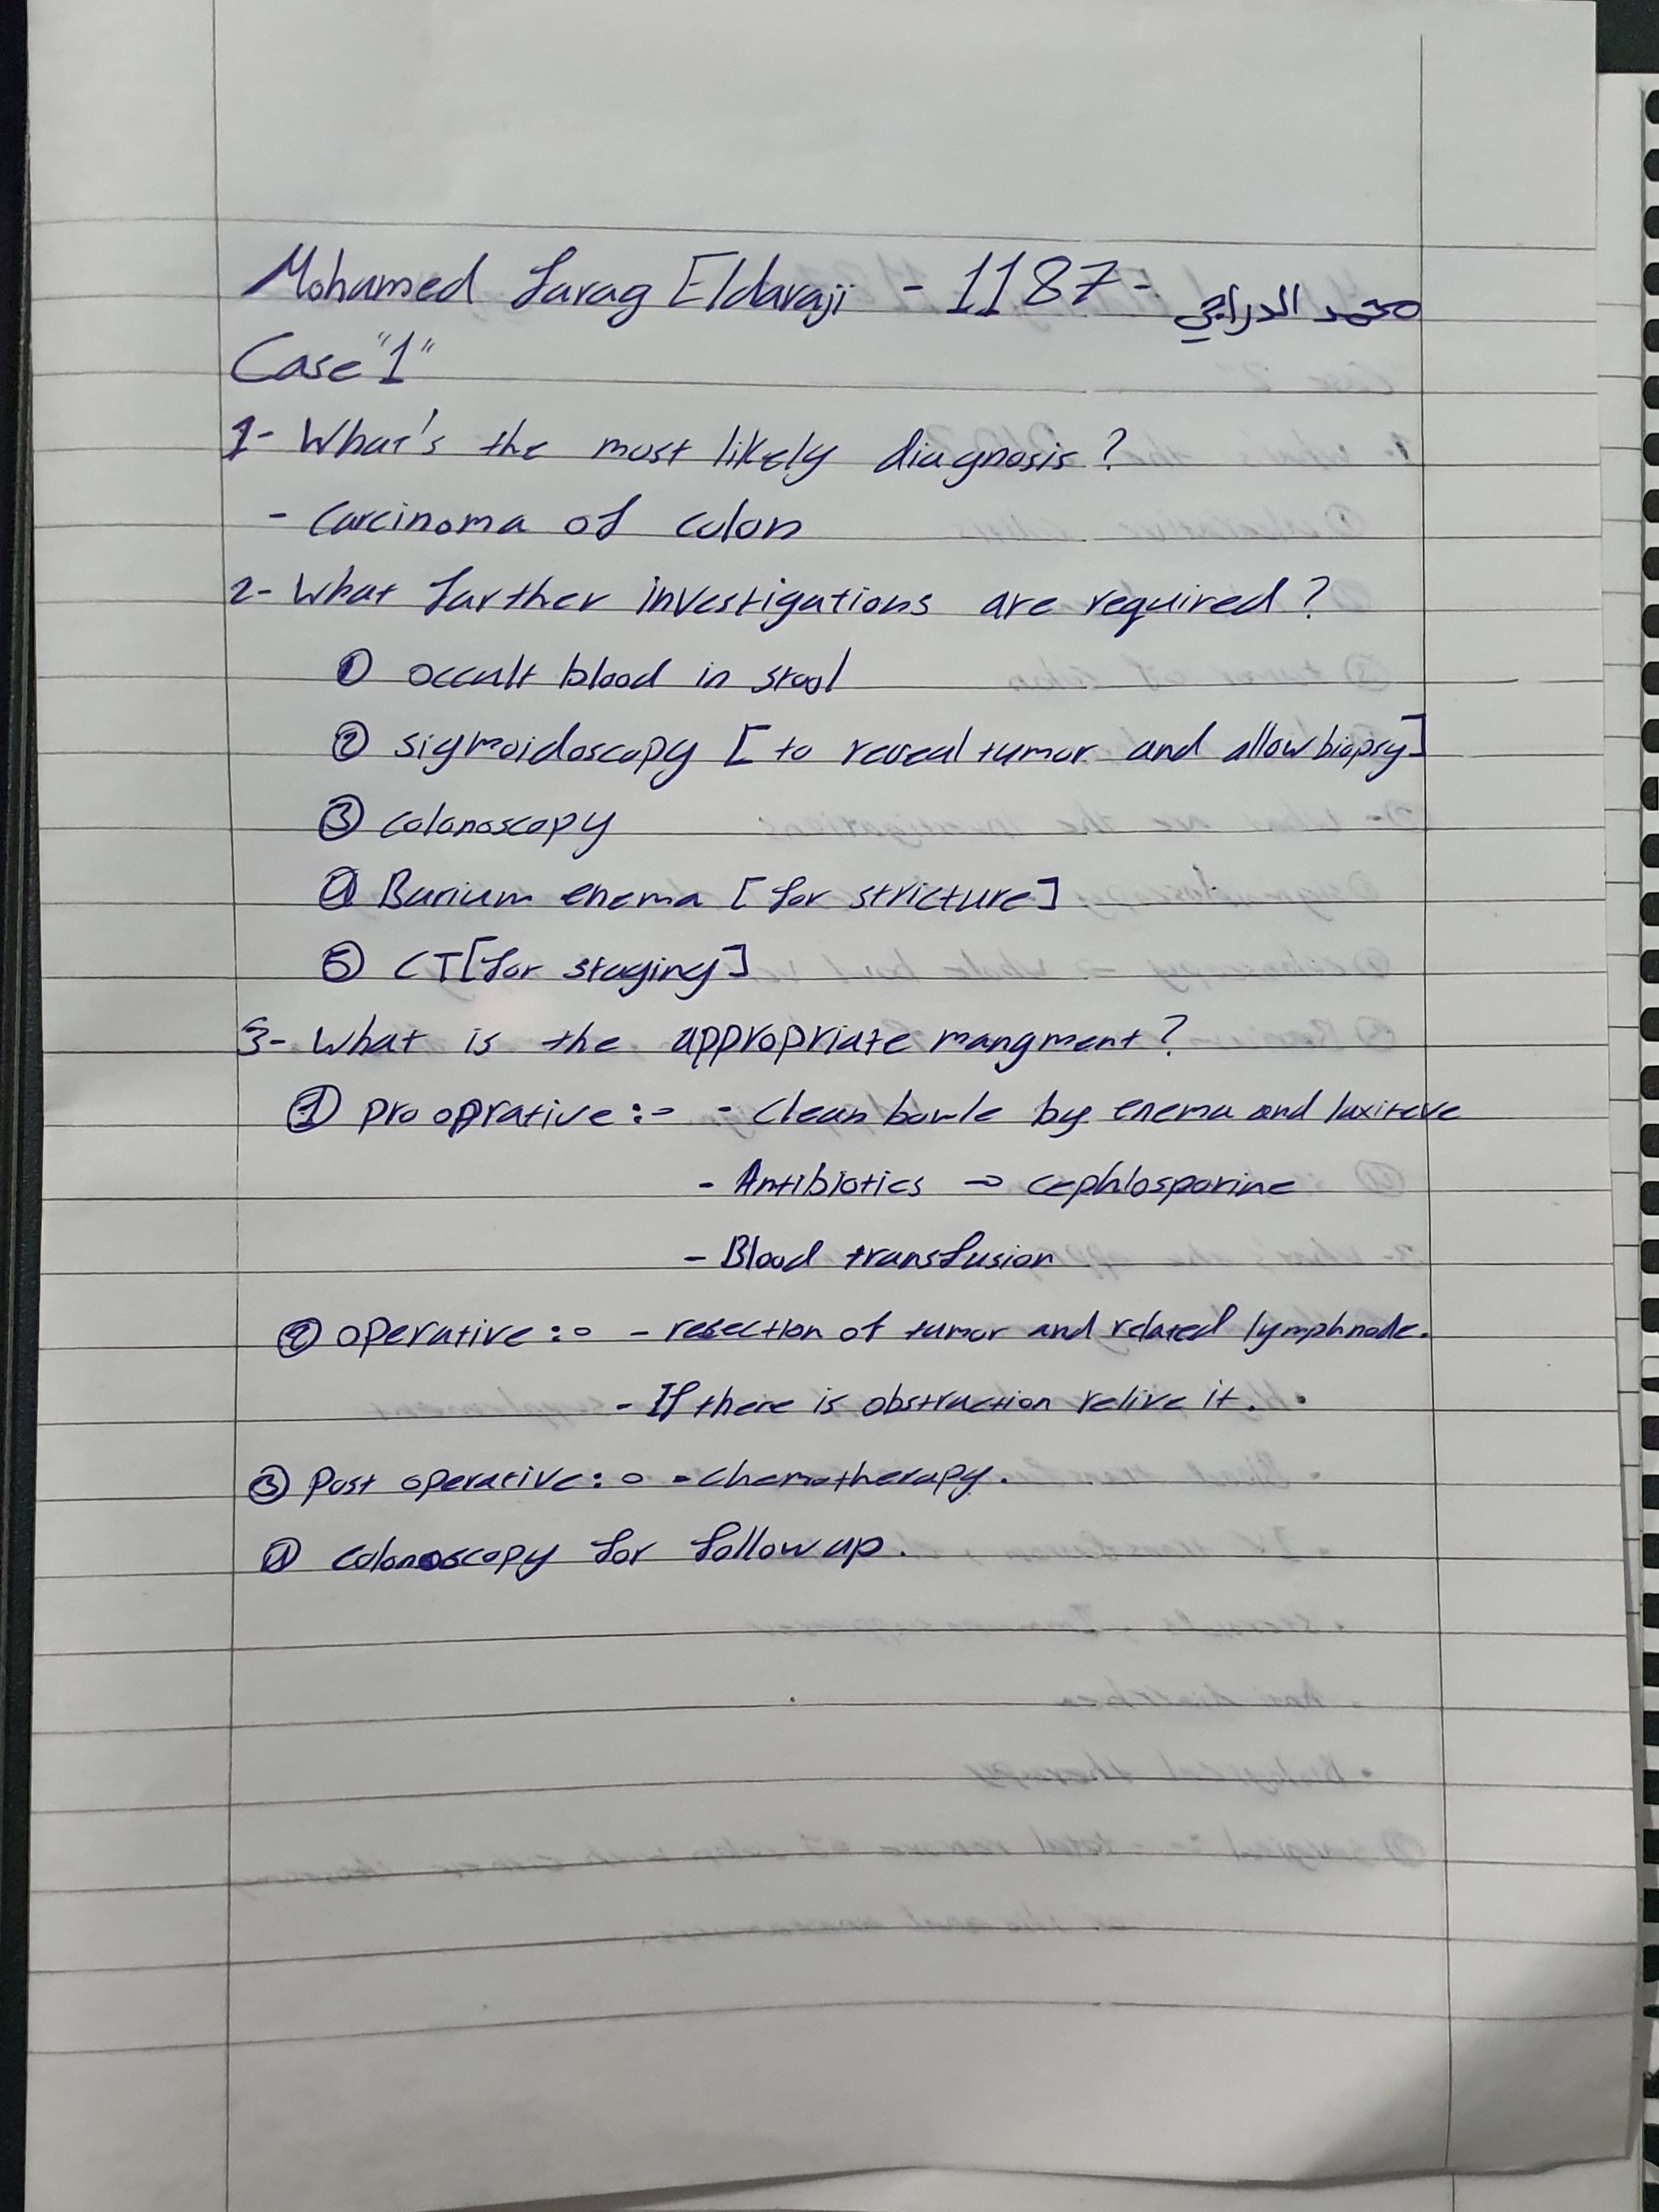 Mohamed Farag Eldaraji - 1187 - محمد الدراجي
Case "1"
1- What's the most likely diagnosis?
- carcinoma of colon
2- What farther investigations are required?
① occult blood in stool
② sigmoidoscopy [to reveal tumor and allow biopsy]
③ colonoscopy
④ Barium enema [for stricture]
⑤ CT [for staging]
3- What is the appropriate mangment?
① pro oprative :- - clean bowle by enema and laxiteve
- Antibiotics → cephlosporine
- Blood transfusion
② operative :- - resection of tumor and related lymphnode.
- If there is obstruction relive it.
③ Post operative :- - chemotherapy.
④ colonoscopy for follow up.